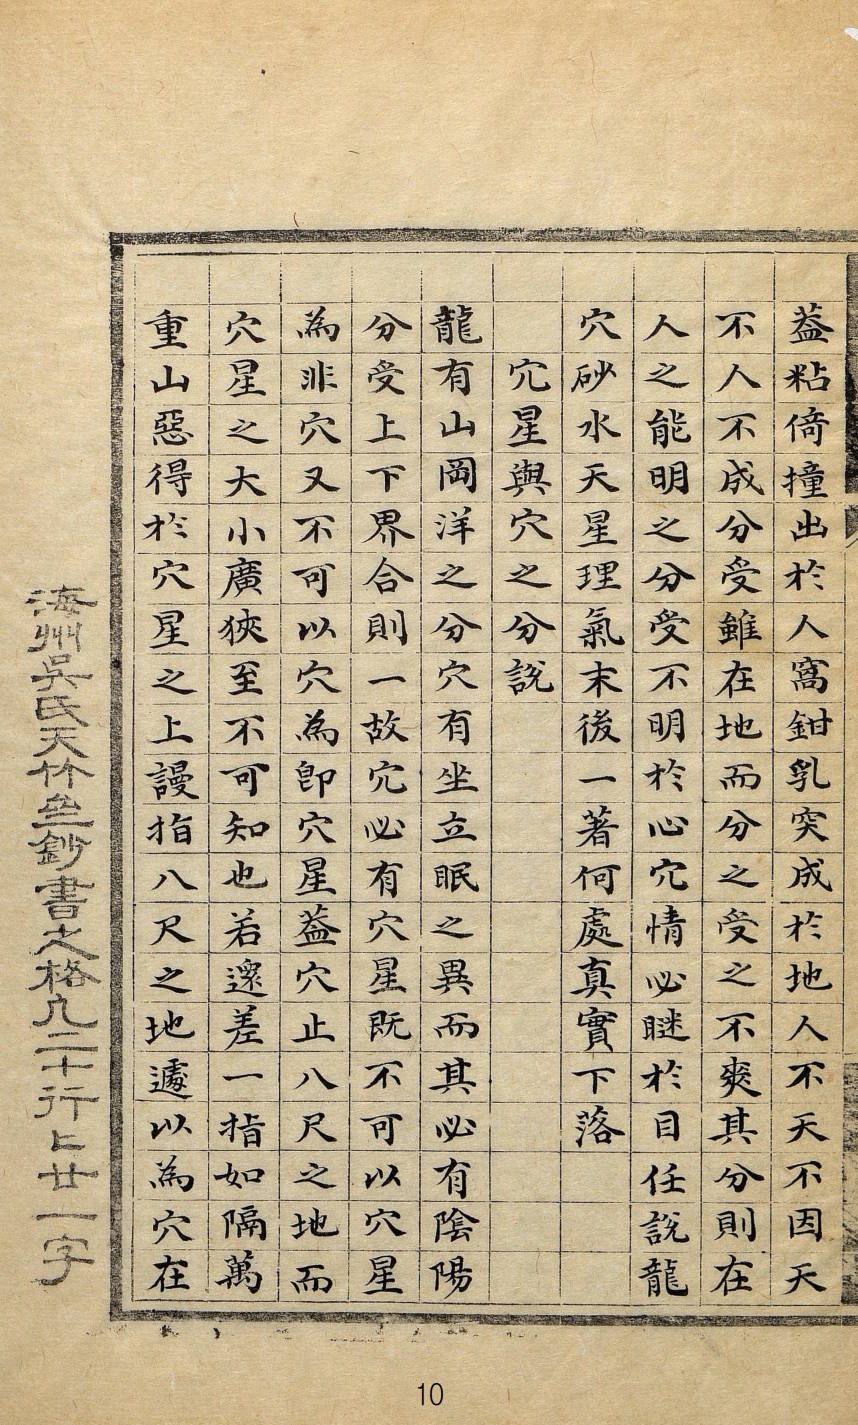 葢粘倚撞出於人窩鉗乳突成於地人不天不因天
不人不成分受雖在地而分之受之不爽其分則在
人之能明之分受不明於心穴情必瞇於目任說龍
穴砂水天星理氣末後一著何處真實下落
穴星與穴之分說
龍有山岡洋之分穴有坐立眠之異而其必有陰陽
分受上下界合則一故穴必有穴星既不可以穴星
為非穴又不可以穴為卽穴星葢穴止八尺之地而
穴星之大小廣狹至不可知也若邃差一指如隔萬
重山惡得於穴星之上謾指八尺之地遽以為穴在
海州吳氏天竹盦鈔書之格凡二十行〻廿一字
10